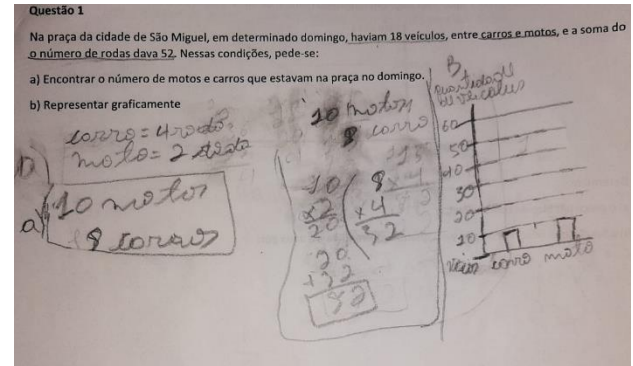 Questão 1
Na praça da cidade de São Miguel, em determinado domingo, haviam 18 veículos, entre carros e motos, e a soma do
o número de rodas dava 52. Nessas condições, pede-se:
a) Encontrar o número de motos e carros que estavam na praça no domingo.
b) Representar graficamente
carro = 4 roda
moto = 2 roda
a) 10 motos
8 carros
10 motos
8 carro
10
x2
20
8
x4
32
20
+32
52
B
quantidade
de veículos
60
50
40
30
20
10
carro moto